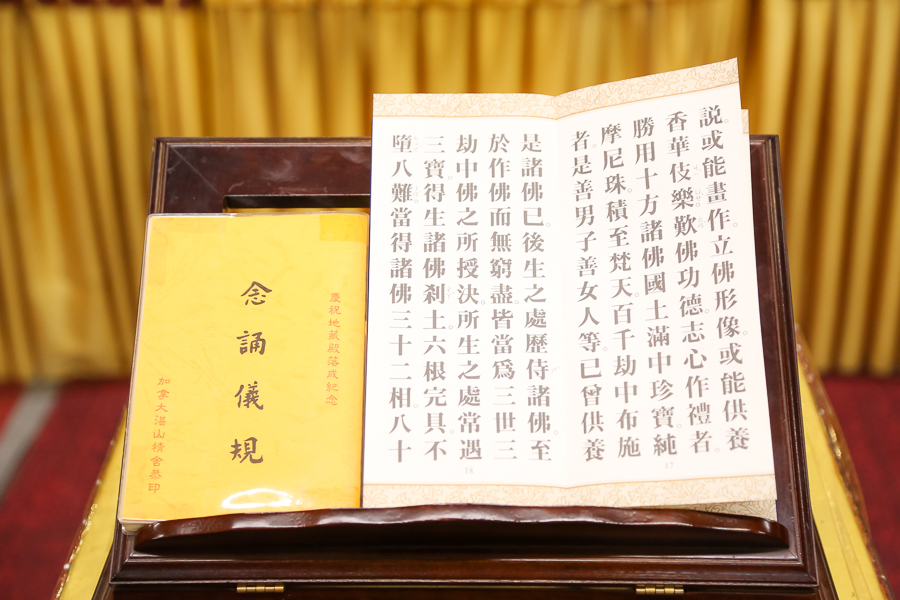 説。或能畫作。立佛形像。或能供養
香華伎樂。歎佛功德。志心作禮者。
勝用十方諸佛國土滿中珍寶。純
摩尼珠。積至梵天。百千劫中布施
者。是善男子善女人等。已曾供養
17
是諸佛已。後生之處歷侍諸佛。至
於作佛而無窮盡皆當爲三世三
劫中佛之所授決。所生之處常遇
三寶。得生諸佛刹土。六根完具。不
墮八難當得諸佛三十二相。八十
18
慶祝地藏殿落成紀念
念誦儀規
加拿大湛山精舍恭印